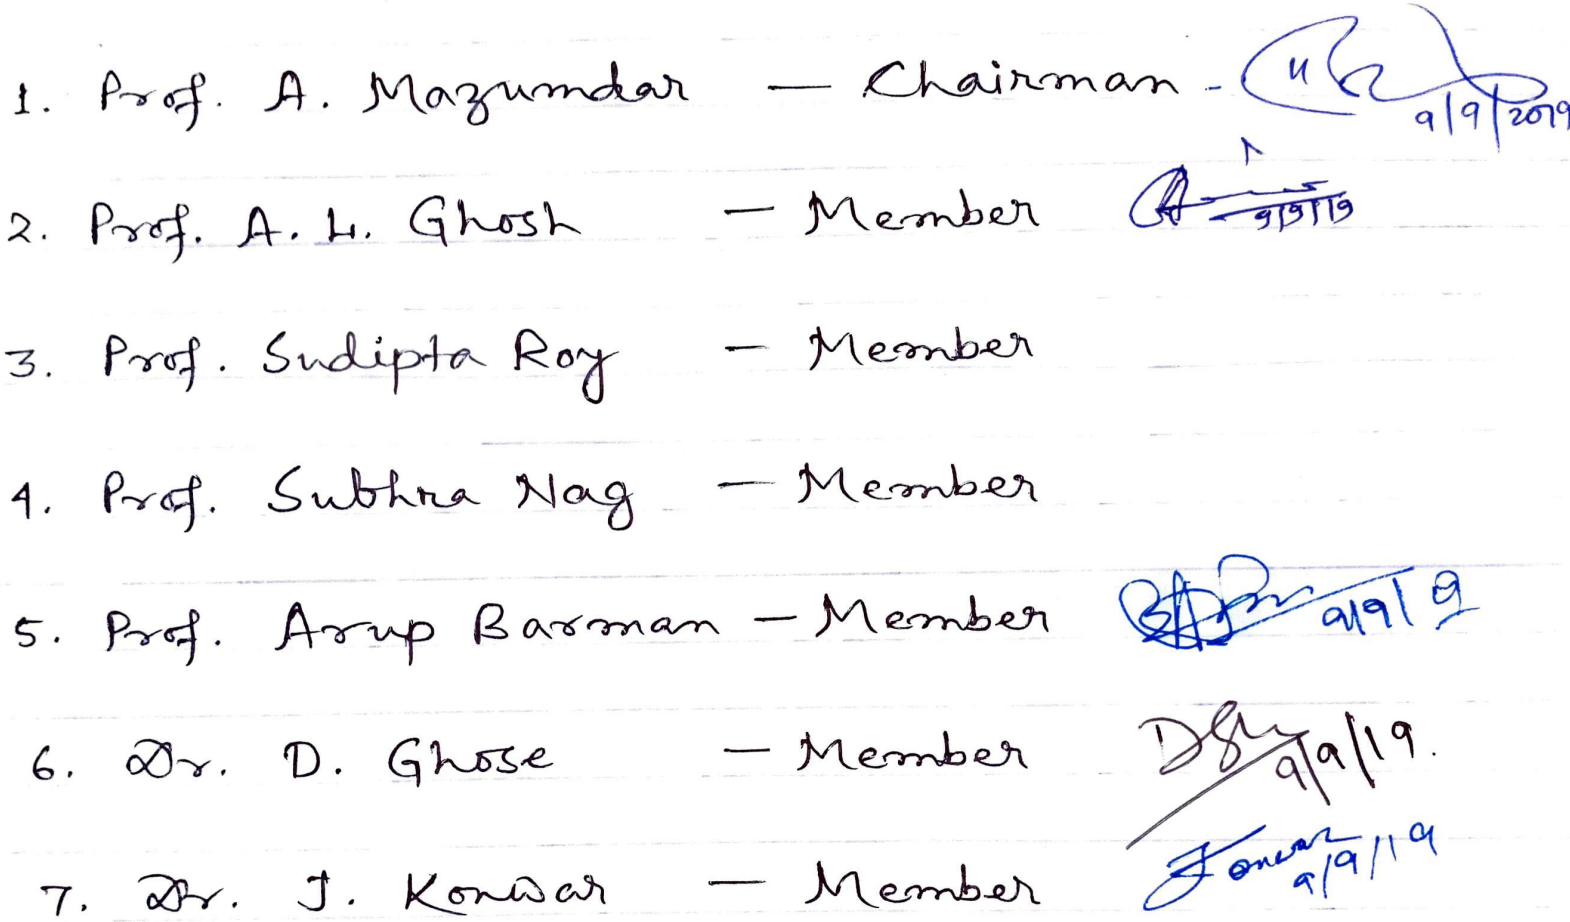 1. Prof. A. Mazumdar — Chairman - 9/9/2019
2. Prof. A. L. Ghosh — Member 9/9/19
3. Prof. Sudipta Roy — Member
4. Prof. Subhra Nag — Member
5. Prof. Arup Barman — Member 9/9/19
6. Dr. D. Ghose — Member 9/9/19.
7. Dr. J. Konwar — Member Konwar 9/9/19